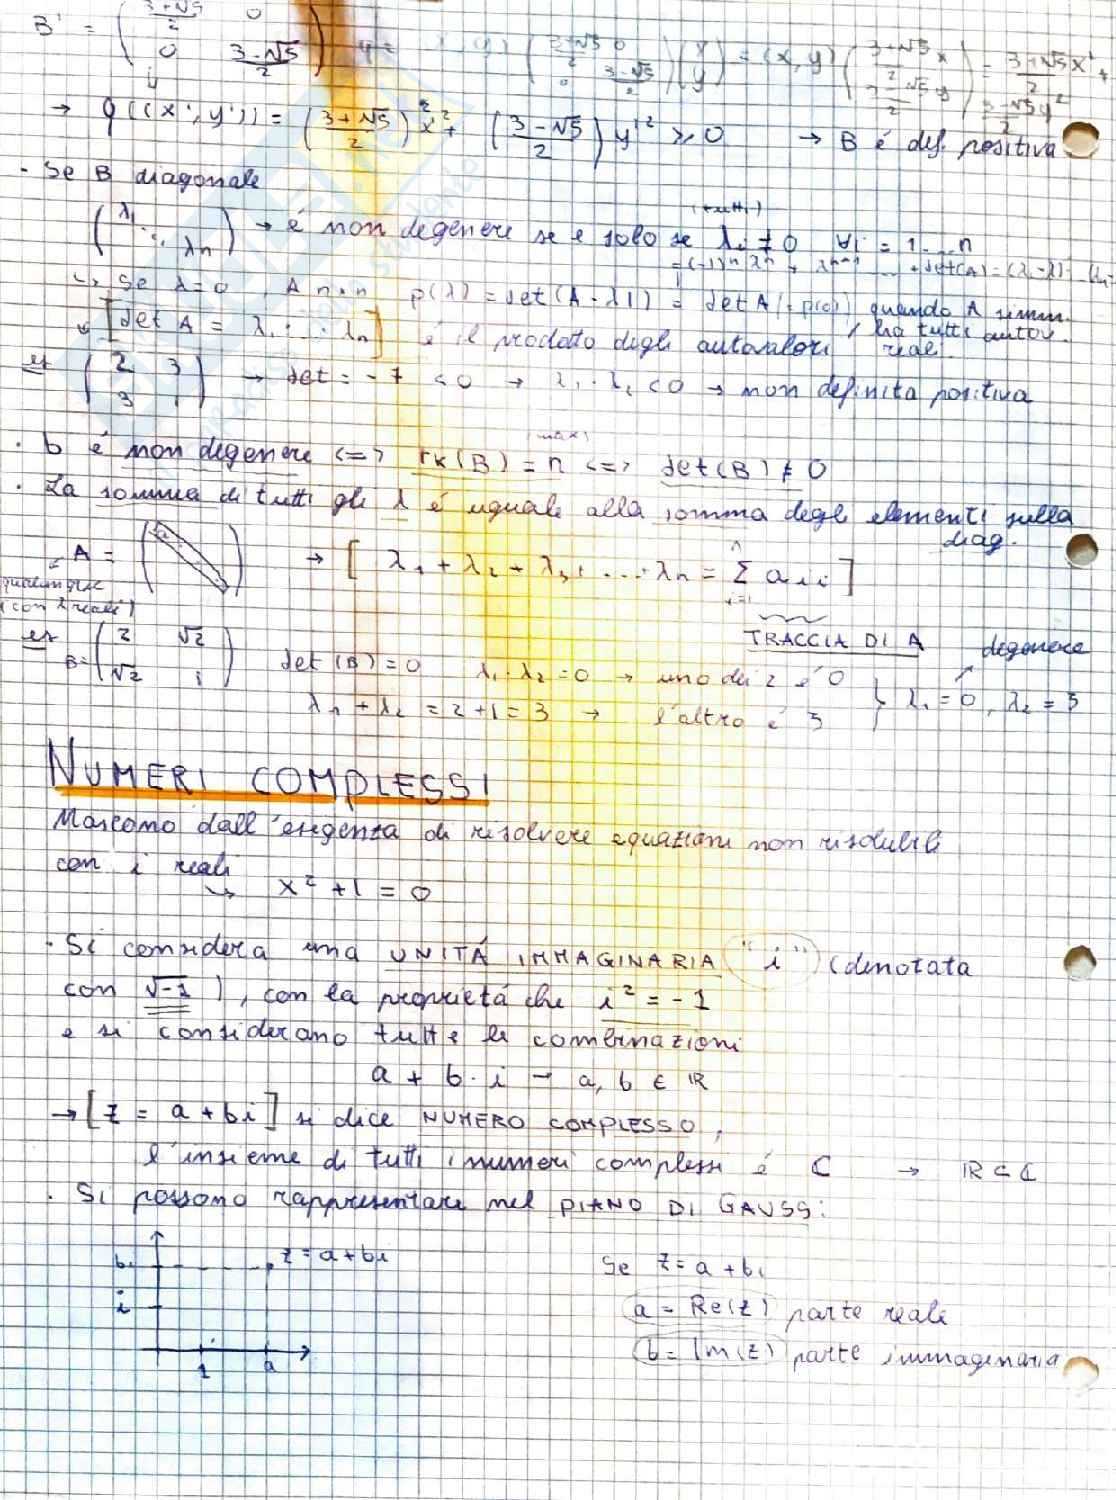 B' = ( (3+√5)/2 0
0 (3-√5)/2 ) (x, y) ( (3+√5)/2 0 0 (3-√5)/2 ) (x y) = (x, y) ( (3+√5)/2 x (3-√5)/2 y ) = (3+√5)/2 x² + (3-√5)/2 y²
→ q((x', y')) = ((3+√5)/2) x'² + ((3-√5)/2) y'² ≥ 0 → B é def. positiva
· Se B diagonale
(tutti)
( λ1 ⋱ λn ) → é non degenere se e solo se λi ≠ 0 ∀i = 1...n
= (-1)ⁿ λⁿ + λⁿ⁻¹ ... + det(A) = (λ1-λ)
↳ Se λ=0, A n×n p(λ) = det(A-λI) = det A (p(0)) quando A simm.
[det A = λ1 · ... · λn] é il prodotto degli autovalori / ha tutti autov. reali
es ( 2 3 3 1 ) → det = -7 < 0 → λ1 · λ2 < 0 → non definita positiva
(max)
· b é non degenere <=> rk(B) = n <=> det(B) ≠ 0
· La somma di tutti gli λ é uguale alla somma degli elementi sulla diag.
A = → [ λ1 + λ2 + λ3, ... + λn = Σ aii ]
n
i=1
qualunque
(con λ reali)
TRACCIA DI A
es B = ( 2 √2 √2 1 ) det(B) = 0 λ1 · λ2 = 0 → uno dei 2 é 0 } λ1 = 0, λ2 = 3
degenere
λ1 + λ2 = 2+1 = 3 → l'altro é 3
NUMERI COMPLESSI
Nascono dall'esigenza di risolvere equazioni non risolubili
con i reali
↳ x² + 1 = 0
· Si considera una UNITÁ IMMAGINARIA "i" (denotata
con √-1), con la proprietá che i² = -1
e si considerano tutte le combinazioni
a + b·i → a, b ∈ ℝ
→ [z = a + bi] si dice NUMERO COMPLESSO,
l'insieme di tutti i numeri complessi é C → ℝ ⊂ C
· Si possono rappresentare nel PIANO DI GAUSS:
bi z = a + bi Se z = a + bi
i a = Re(z) parte reale
1 a b = Im(z) parte immaginaria